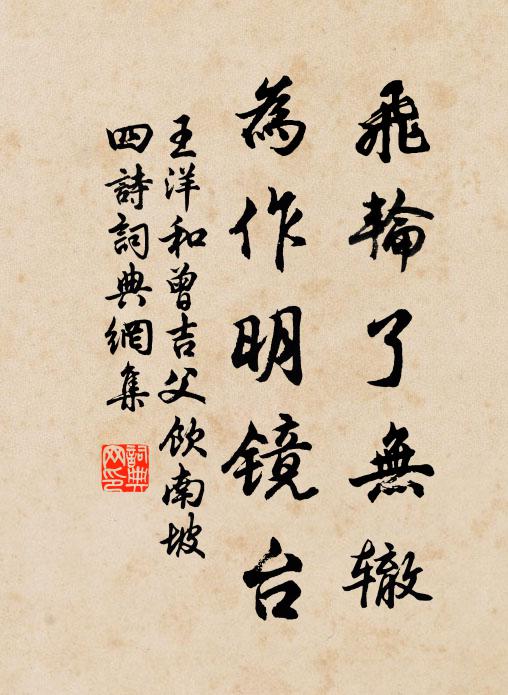 飛輪了無辙
為作明鏡台
王洋和曾吉父飲南坡
四詩詞典網集
詞典
网印